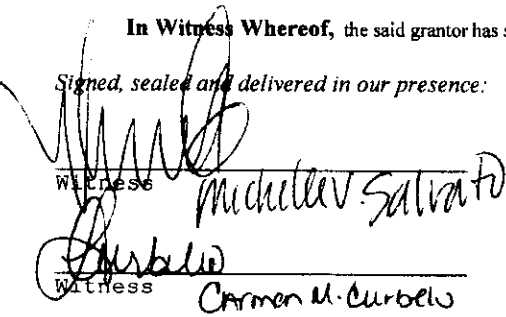 In Witness Whereof, the said grantor has s
Signed, sealed and delivered in our presence:
Witness Michelle V. Salvato
Curbelo
Witness Carmen M. Curbelo